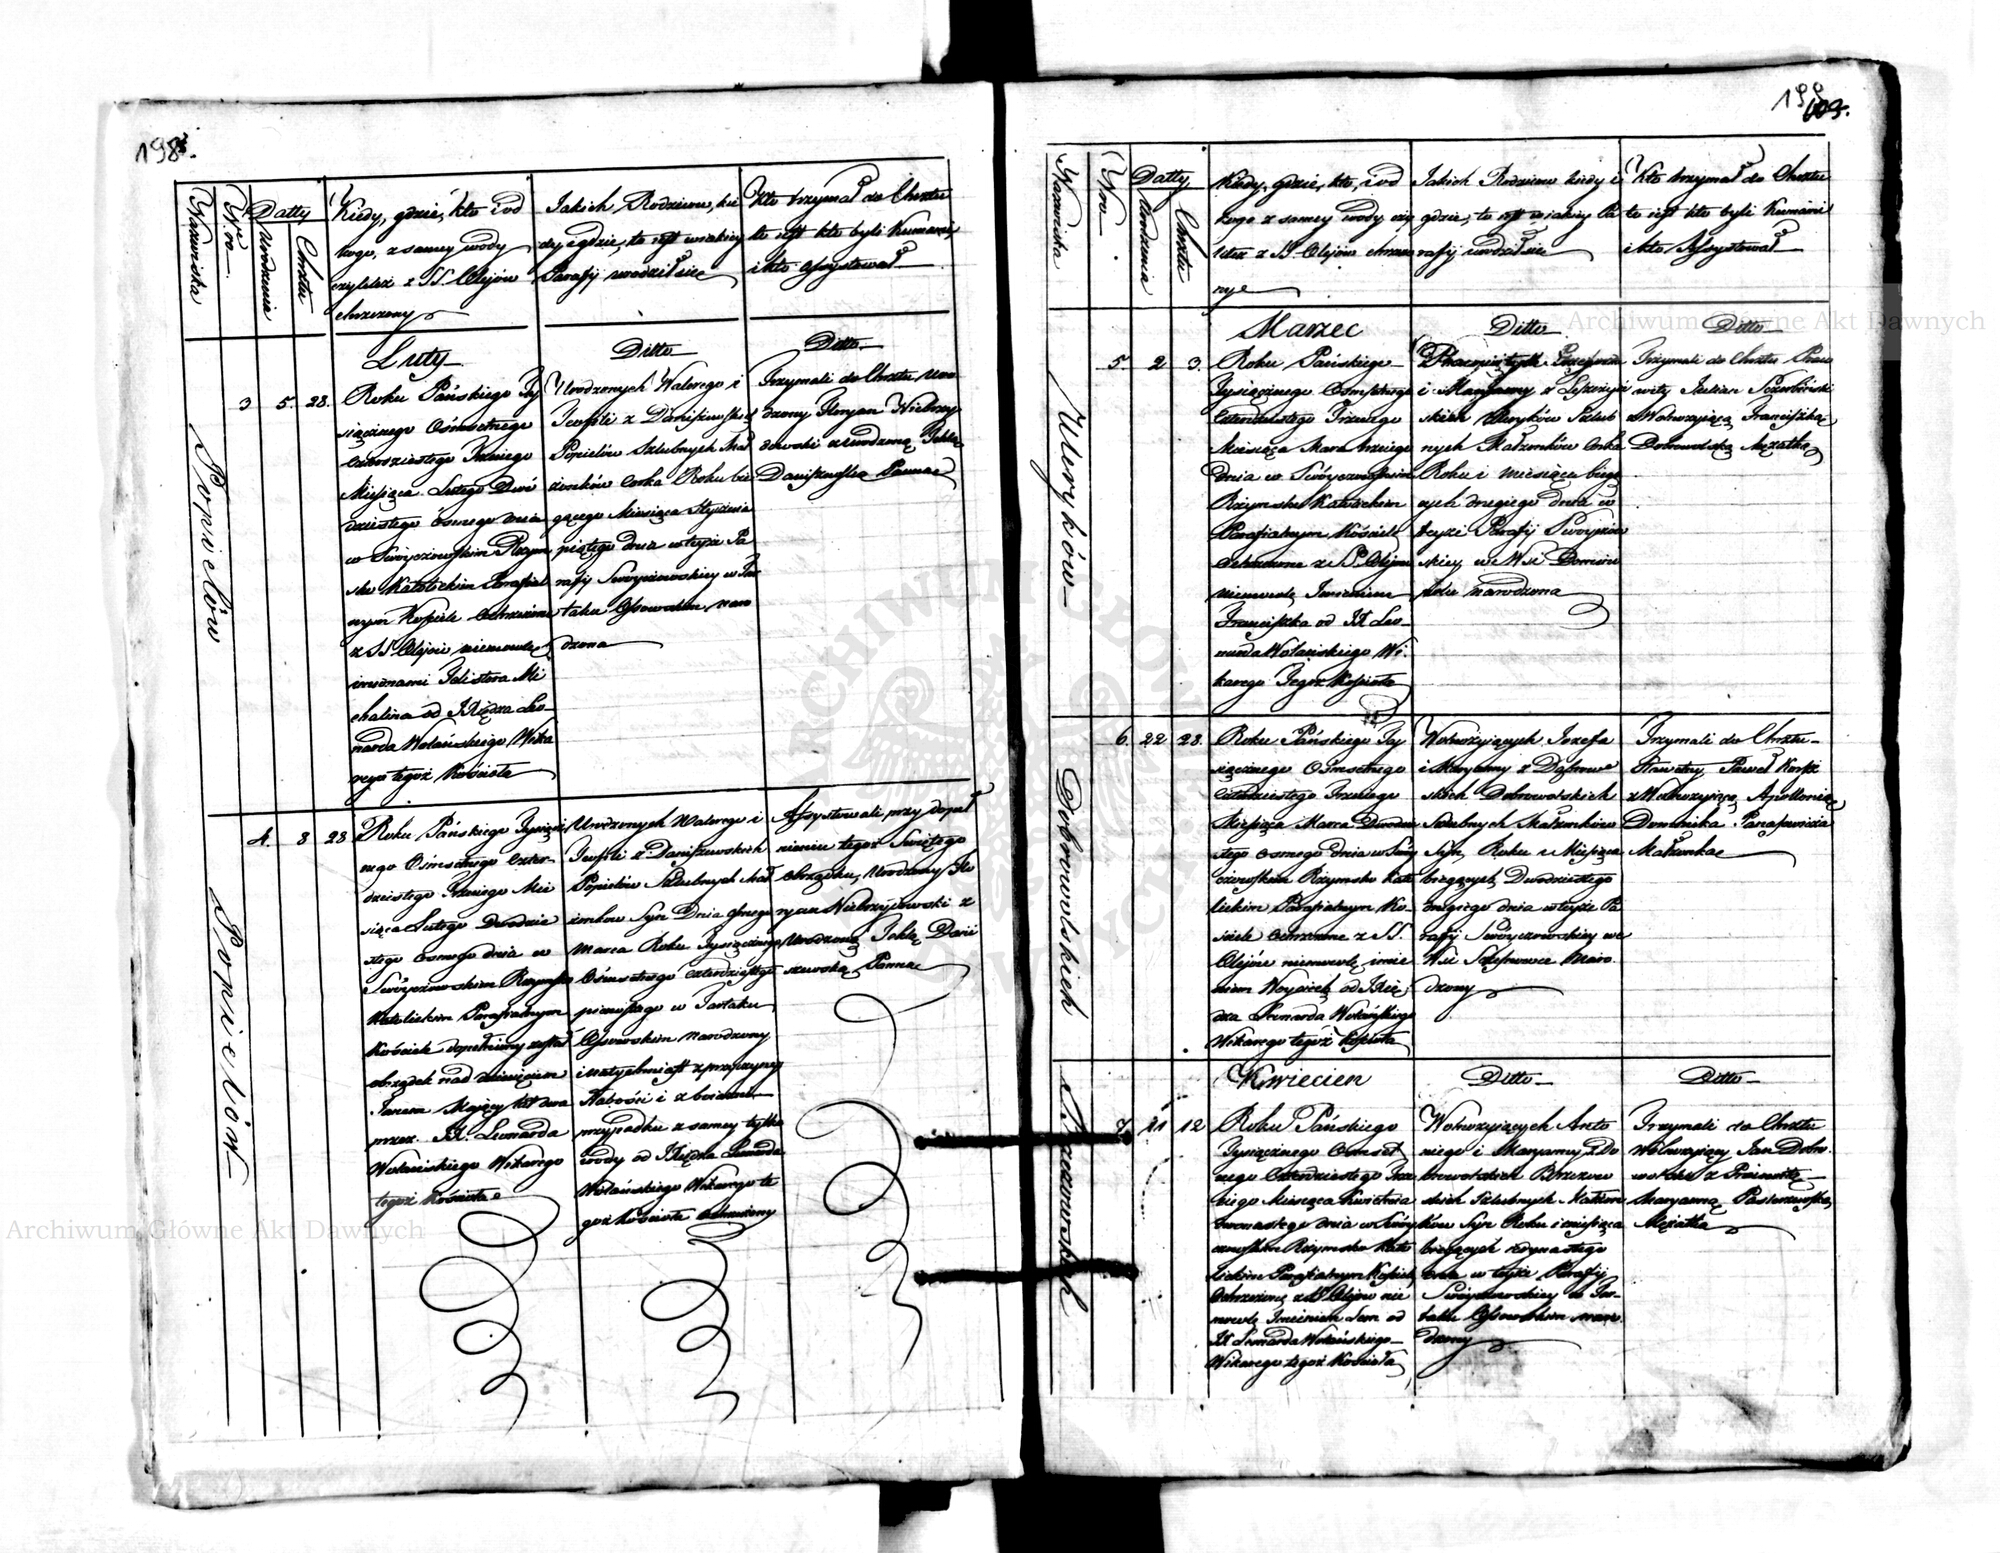 198.
Nazwiska
Nro.
Datty
Urodzenia
Chrztu
Kiedy, gdzie, kto, i od
kogo, z samey wody
czyli też z SS. Olejów
chrzczony
Jakich Rodziców, kie
dy i gdzie, to jest w jakiey
Parafij urodził się
Kto trzymał do Chrztu
to jest kto byli Kumami,
i kto Assystował
Luty
Ditto
Ditto
Popielów
3
5.
28.
Roku Pańskiego Ty
siącznego Ośmsetnego
Czterdziestego Trzeciego
Miesiąca Lutego Dwó
dziestego ósmego dnia
w Swóyczowskim Rzym
sko Katolickim Parafial
nym Kościele Ochrzczone
z SS. Olejów niemowlę
imionami Mi
chalina od JXiędza Leo
narda Wolańskiego Wika
rego tegoż Kościoła
Urodzonych Walerego i
Teofili z Daniszewskich
Popielów Szlubnych Mał
żonków Corka Roku bie
żącego Miesiąca Stycznia
piątego dnia w teyże Pa
rafij Swoyczowskiey w Tar
taku Ossowskim naro
dzona
Trzymali do Chrztu Uro
dzony Floryan Niebrzy
dowski z Urodzoną Teklą
Daniszewską Panną
Popielów
4.
8
28
Roku Pańskiego Tysiącz
nego Ośmsetnego Czter
dziestego Trzeciego Mie
siąca Lutego Dwudzie
stego ósmego dnia w
Swóyczowskim Rzymsko
Katolickim Parafialnym
Kościele dopełniony został
obrządek nad dziecięciem
Mający lat dwa
przez JX. Leonarda
Wolańskiego Wikarego
tegoż Kościoła
Urodzonych Walerego i
Teofili z Daniszewskich
Popielów Szlubnych Mał
żonków Syn Dnia ósmego
Marca Roku Tysiącznego
Ośmsetnego Czterdziestego
pierwszego w Tartaku
Ossowskim narodzony
i natychmiast z przyczyny
Słabości i z
przypadku z samey tylko
wody od JXiędza Leonarda
Wolańskiego Wikarego te
goż Kościoła Ochrzczony
Assystowali przy dopeł
nieniu tegoż Swiętego
obrządku, Urodzony Flo
ryan Niebrzydowski z
Urodzoną Teklą Dani
szewską Panną
199
Nazwiska
Nro.
Datty
Urodzenia
Chrztu
Kiedy, gdzie, kto, i od
kogo z samey wody czy
li też z SS. Olejów chrzczo
ny
Jakich Rodziców kiedy i
gdzie, to jest w jakiey Pa
rafij urodził się
Kto trzymał do Chrztu
to jest kto byli Kumami
i kto Assystował
Marzec
Ditto
Ditto
5.
2
3.
Roku Pańskiego
Tysiącznego Ośmsetnego
Czterdziestego Trzeciego
Miesiąca Marca trzeciego
Dnia w Swóyczowskim
Rzymsko Katolickim
Parafialnym Kościele
Ochrzczone z SS. Olejów
niemowlę Imieniem
Franciszka od JX Leo
narda Wolańskiego Wi
karego Tegoż Kościoła
i Maryanny z
skich Szlub
nych Małżonków Corka
Roku i miesiąca bieżą
cych drugiego dnia w
teyże Parafij Swoyczow
skiey, we Wsi
narodzona
Trzymali do Chrztu Praco
wity Julian
z Wolnożyjącą Franciszką
Dobrowolską Mężatką
Dobrowolskich
6.
22
28.
Roku Pańskiego Ty
siącznego Ośmsetnego
Czterdziestego Trzeciego
Miesiąca Marca Dwudzie
stego ósmego Dnia w Swóy
czowskim Rzymsko Kato
lickim Parafialnym Ko
ściele Ochrzczone z SS.
Olejów niemowlę imie
niem Woyciech od JXię
dza Leonarda Wolańskiego
Wikarego tegoż Kościoła
Wolnożyjących Jozefa
i Maryanny z Dąbrow
skich Dobrowolskich
Szlubnych Małżonków
Syn Roku i Miesiąca
bieżących Dwudziestego
drugiego dnia w teyże Pa
rafij Swóyczowskiey we
Wsi naro
dzony
Trzymali do Chrztu
Paweł
z Wolnożyjącą Apollonią
Dominika
Małżonką
Kwiecień
Ditto
Ditto
7.
11
12
Roku Pańskiego
Tysiącznego Ośmset
nego Czterdziestego Trze
ciego Miesiąca Kwietnia
dwunastego dnia w Swóy
czowskim Rzymsko Kato
lickim Parafialnym Kościele
Ochrzczone z SS Olejów nie
mowlę Imieniem Leon od
JX Leonarda Wolańskiego
Wikarego tegoż Kościoła
Wolnożyjących Anto
niego i Maryanny z Do
browolskich
Szlubnych Małżon
ków Syn Roku i miesiąca
bieżących jedynastego
dnia w teyże Parafij
Swóyczowskiey w Tar
taku Ossowskim naro
dzony
Trzymali do Chrztu
Wolnożyjący Jan Dobro
wolski z
Maryanną
Mężatką
Archiwum Główne Akt Dawnych
Archiwum Główne Akt Dawnych